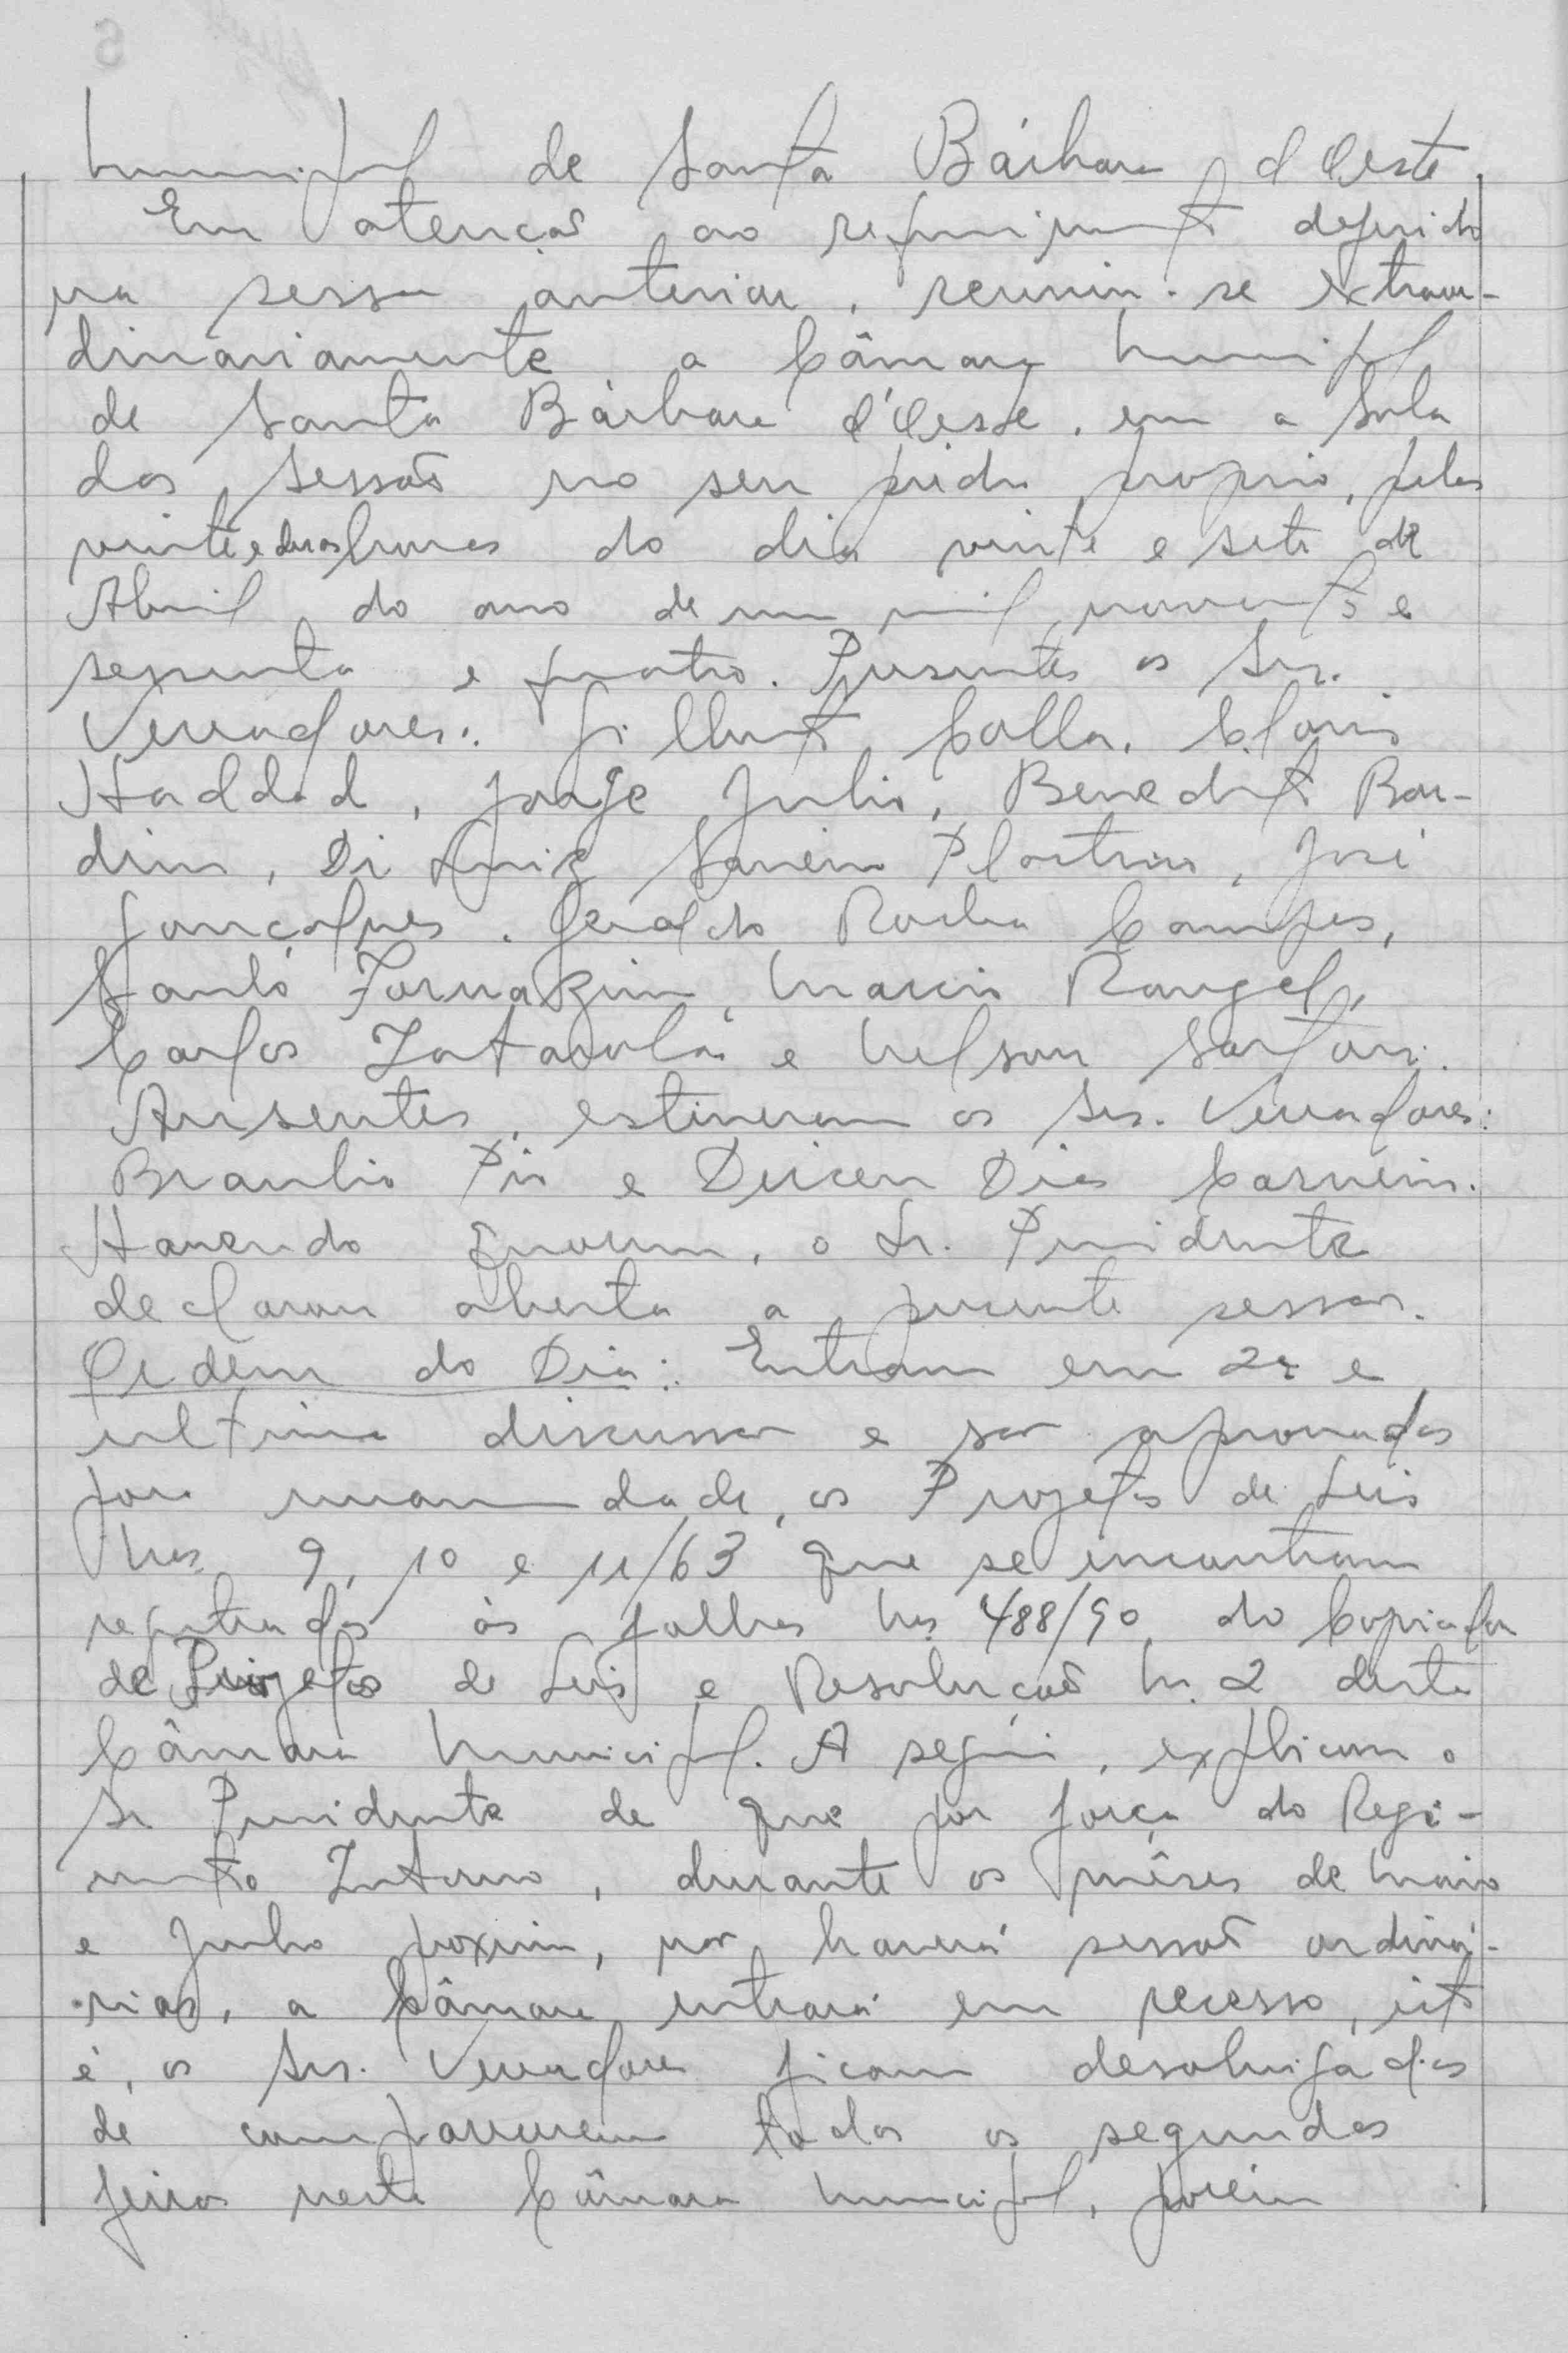 Municipal de Santa Bárbara d'Oeste.
Em atenção ao requerimento deferido
na sessão anterior, reuniu-se extraor-
dinariamente a Câmara Municipal
de Santa Bárbara d'Oeste, em a Sala
das Sessão no seu prédio proprio, pelas
vinte e duas horas do dia vinte e sete de
Abril do ano de um mil novecentos e
sessenta e quatro. Presentes os Srs.
Vereadores: Gilberto Colla, Clovis
Haddad, Jorge Julio, Benedito Bor-
din, Dr Luiz Panéno Plastino, José
Gonçalves, Geraldo Rocha Campos,
Santo Fornazim, Marcio Rangel,
Carlos Zatarola e Nelson Sartori.
Ausentes, estiveram os Srs. Vereadores:
Braulio Pio e Dirceu Dias Carneiro.
Havendo quorum, o Sr. Presidente
declarou aberta a presente sessão.
Ordem do Dia: Entram em 2ª e
ultima discussão e são aprovados
por unanimidade, os Projetos de Leis
Nos 9, 10 e 11/63 que se encontram
registrados às folhas Nos 488/90 do Copiador
de Projetos de Leis e Resolução N. 2 desta
Câmara Municipal. A seguir, explicou o
Sr Presidente de que por força do Regi-
mento Interno, durante os mêses de Maio
e Junho proximo, não haverá sessão ordiná-
rias, a Câmara entrará em recesso, isto
é, os Srs. Vereadores ficam desobrigados
de comparecerem todas as segundas
feiras nesta Câmara Municipal, porém